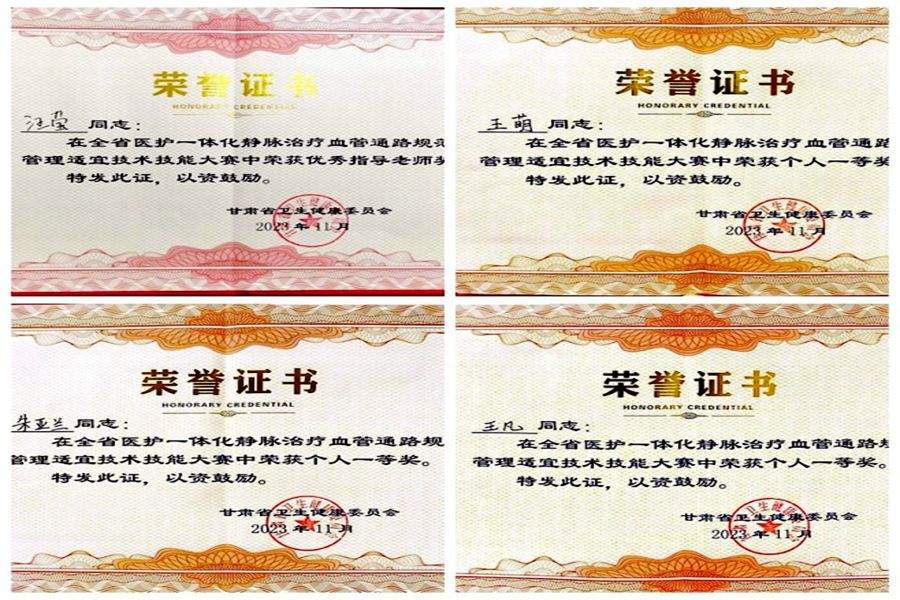 荣誉证书
HONORARY CREDENTIAL
汪莹 同志：
在全省医护一体化静脉治疗血管通路规范
管理适宜技术技能大赛中荣获优秀指导老师奖
特发此证，以资鼓励。
甘肃省卫生健康委员会
2023 年 11 月
荣誉证书
HONORARY CREDENTIAL
王萌 同志：
在全省医护一体化静脉治疗血管通路规
管理适宜技术技能大赛中荣获个人一等奖
特发此证，以资鼓励。
甘肃省卫生健康委员会
2023 年 11 月
荣誉证书
HONORARY CREDENTIAL
朱亚兰 同志：
在全省医护一体化静脉治疗血管通路规
管理适宜技术技能大赛中荣获个人一等奖。
特发此证，以资鼓励。
甘肃省卫生健康委员会
2023 年 11 月
荣誉证书
HONORARY CREDENTIAL
王凡 同志：
在全省医护一体化静脉治疗血管通路规
管理适宜技术技能大赛中荣获个人一等奖。
特发此证，以资鼓励。
甘肃省卫生健康委员会
2023 年 11 月